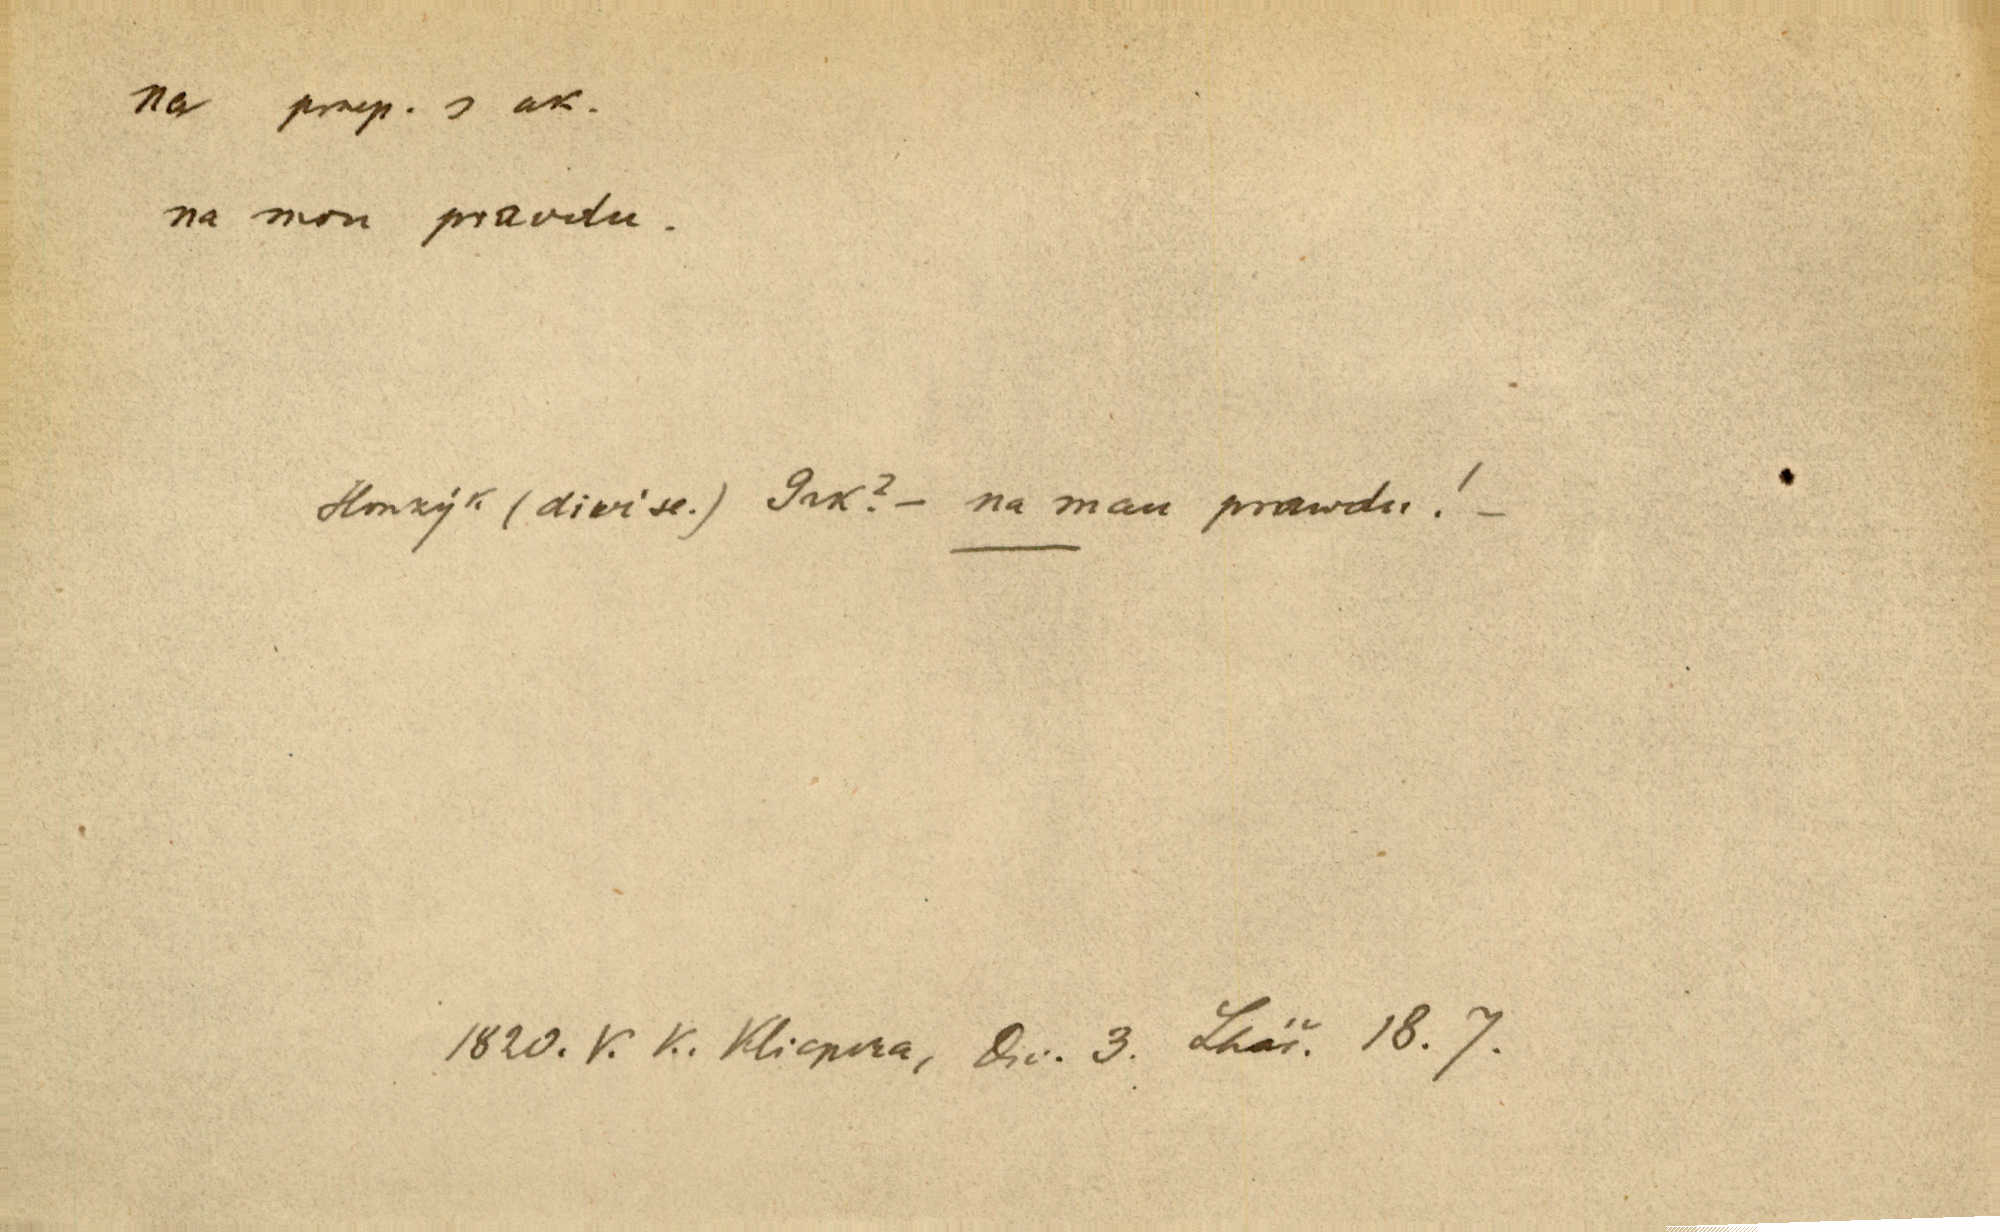 na praep. s ak.
na mou pravdu.
Honzýk (diwí se.) Gak? – na mau prawdu! –
1820. V. K. Klicpera, Div. 3. Lhář. 18. 7.